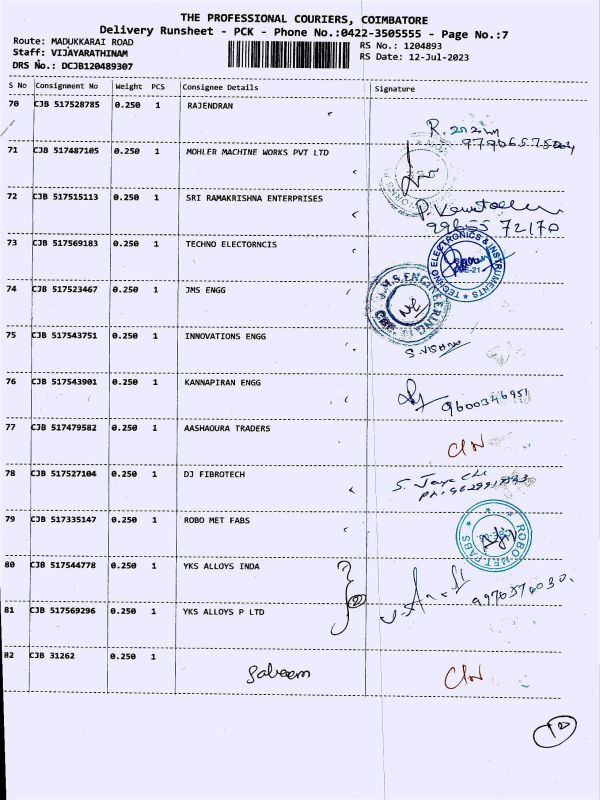 THE PROFESSIONAL COURIERS, COIMBATORE
Delivery Runsheet - PCK - Phone No.:0422-3505555 - Page No.:7
Route: MADUKKARAI ROAD
RS No.: 1204893
Staff: VIJAYARATHINAM
RS Date: 12-Jul-2023
DRS No.: DCJB120489307
S No Consignment No Weight PCS Consignee Details Signature
70 CJB 517528785 0.250 1 RAJENDRAN
71 CJB 517487105 0.250 1 MOHLER MACHINE WORKS PVT LTD
72 CJB 517515113 0.250 1 SRI RAMAKRISHNA ENTERPRISES
99655 72170
73 CJB 517569183 0.250 1 TECHNO ELECTORNCIS
TECHNO ELECTRONICS & INSTRUMENTS
74 CJB 517523467 0.250 1 JMS ENGG
J.M.S. ENGINEERING
75 CJB 517543751 0.250 1 INNOVATIONS ENGG
76 CJB 517543901 0.250 1 KANNAPIRAN ENGG
9600346951
77 CJB 517479582 0.250 1 AASHAOURA TRADERS
78 CJB 517527104 0.250 1 DJ FIBROTECH
79 CJB 517335147 0.250 1 ROBO MET FABS
ROBO MET FABS
80 CJB 517544778 0.250 1 YKS ALLOYS INDA
81 CJB 517569296 0.250 1 YKS ALLOYS P LTD
82 CJB 31262 0.250 1
Sabeem